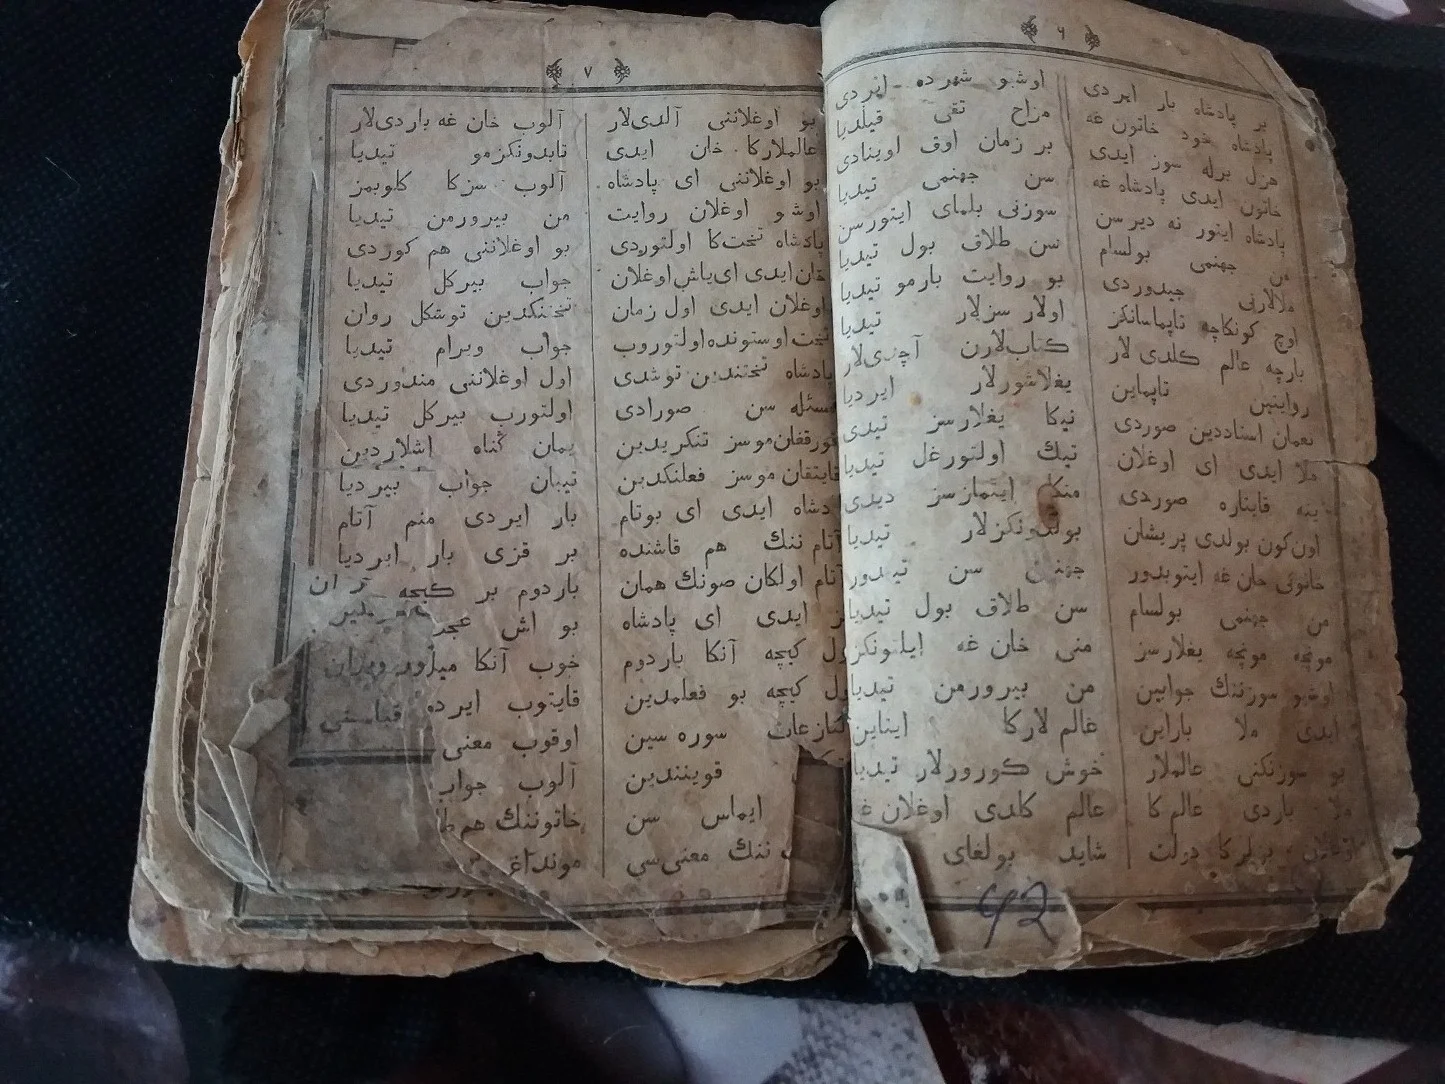 ٦
بر پادشاه بار ایردی اوشبو شهرده ایردی
پادشاه خود خاتون غه مزاح تقی قیلدیا
هزل برله سوز ایدی بر زمان اوق اوینادی
خاتون ایدی پادشاه غه سن جهنمی تیدیا
پادشاه ایتور نه دیرسن سوزنی بلمای ایتورسن
من جهنمی بولسام سن طلاق بول تیدیا
ملالارنی جیدوردی بو روایت بارمو تیدیا
اوچ کونکاچه تاپماسانکز اولار سزلار تیدیا
بارچه عالم کلدی لار کتاب‌لارن آچدی‌لار
روایتین تاپماین یغلاشورلار ایردیا
نعمان استاددین صوردی نیکا یغلارسز تیدی
ملا ایدی ای اوغلان تیك اولتورغل تیدیا
ینه قایتاره صوردی منکا ایتمازسز دیدی
اون‌کون بولدی پریشان بولدونکزلار تیدیا
خاتونی خان غه ایتوبدور جهنمی سن تیدور
من جهنمی بولسام سن طلاق بول تیدیا
مونچه مونچه یغلارسز منی خان غه ایلتونکز
اوشبو سوزننك جوابین من بیرورمن تیدیا
ایدی ملا باراین عالم لارکا ایتاین
بو سوزنکنی عالملار خوش کورورلار تیدیا
ملا باردی عالم کا عالم کلدی اوغلان غ
برلرکا دولت شاید بولغای
42
٧
بو اوغلاننی آلدی‌لار آلوب خان غه باردی‌لار
عالملارکا خان ایدی تابدونکزمو تیدیا
بو اوغلاننی ای پادشاه آلوب سزکا کلوبمز
اوشبو اوغلان روایت من بیرورمن تیدیا
پادشاه تخت‌کا اولتوردی بو اوغلاننی هم کوردی
خان ایدی ای یاش اوغلان جواب بیرکل تیدیا
اوغلان ایدی اول زمان تختنکدین توشکل روان
تخت اوستونده اولتوروب جواب ویرام تیدیا
پادشاه تختندین توشدی اول اوغلاننی مندوردی
مسئله سن صورادی اولتورب بیرکل تیدیا
قورققان‌موسز تنکریدین یمان گناه اشلاردین
قایتقان موسز فعلنکدین تیبان جواب بیردیا
دشاه ایدی ای بوتام بار ایردی منم آتام
آتام ننك هم قاشنده بر قزی بار ایردیا
آتام اولکان صونك همان باردوم بر کیچه
ایدی ای پادشاه بو اش
ول کیچه آنکا باردوم خوب آنکا
ول کیچه بو فعلمدین قایتوب ایرده
والنازعات سوره سین اوقوب معنی
قویتندین آلوب جواب
ایماس سن خاتوننك هم
ننك معنی‌سی مونداغ